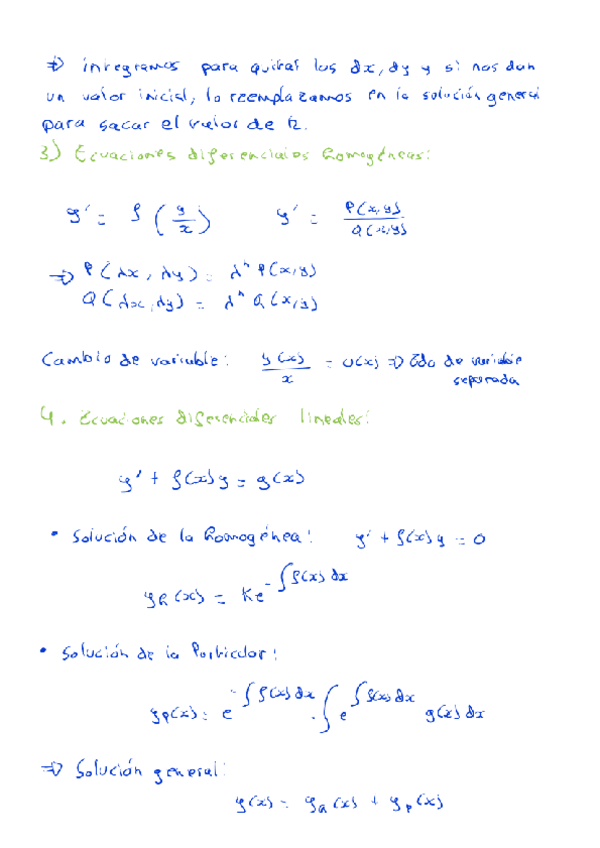 ⇒ integramos para quitar los dx, dy y si nos dan
un valor inicial, lo reemplazamos en la solución general
para sacar el valor de k.
3) Ecuaciones diferenciales homogéneas:
y' = f(y/x)   y' = P(x,y)/Q(x,y)
⇒ P(λx, λy) = λⁿ P(x,y)
Q(λx, λy) = λⁿ Q(x,y)
Cambio de variable: y(x)/x = u(x) ⇒ Edo de variable
separada
4. Ecuaciones diferenciales lineales:
y' + f(x)y = g(x)
• Solución de la homogénea: y' + f(x)y = 0
yh(x) = Ke^(-∫f(x)dx)
• Solución de la Particular:
yp(x) = e^(-∫f(x)dx) · ∫e^(∫f(x)dx) g(x)dx
⇒ Solución general:
y(x) = yh(x) + yp(x)